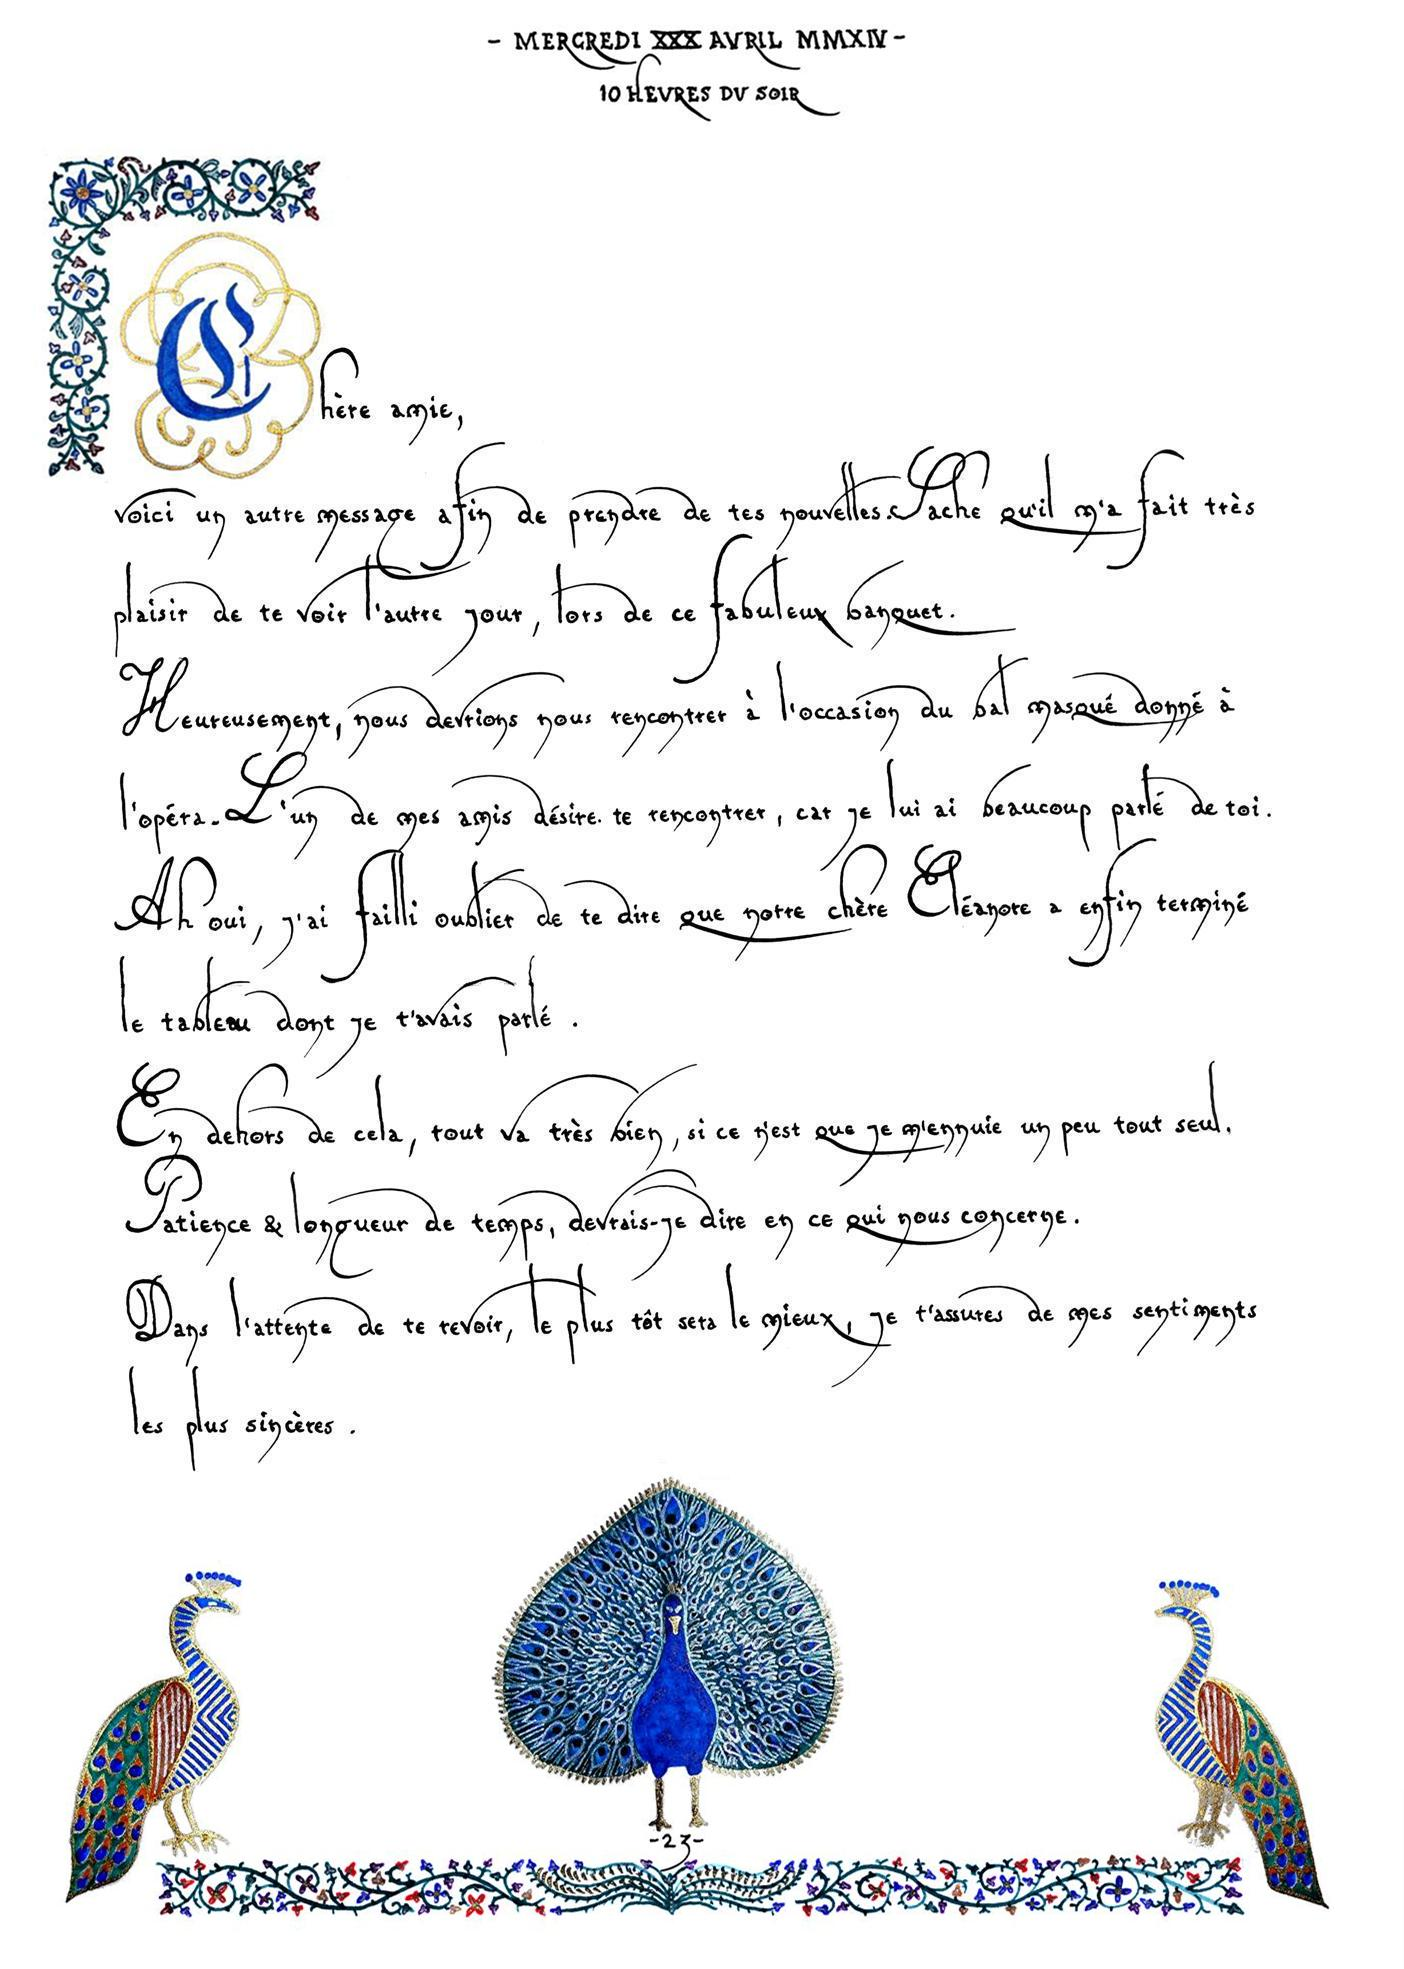 - MERCREDI XXX AVRIL MMXIV -
10 HEVRES DV SOIR
Chère amie,
voici un autre message afin de prendre de tes nouvelles. Sache qu'il m'a fait très
plaisir de te voir l'autre jour, lors de ce fabuleux banquet.
Heureusement, nous devrions nous rencontrer à l'occasion du bal masqué donné à
l'opéra. L'un de mes amis désire te rencontrer, car je lui ai beaucoup parlé de toi.
Ah oui, j'ai failli oublier de te dire que notre chère Eléanore a enfin terminé
le tableau dont je t'avais parlé.
En dehors de cela, tout va très bien, si ce n'est que je m'ennuie un peu tout seul.
Patience & longueur de temps, devrais-je dire en ce qui nous concerne.
Dans l'attente de te revoir, le plus tôt sera le mieux, je t'assures de mes sentiments
les plus sincères.
-23-